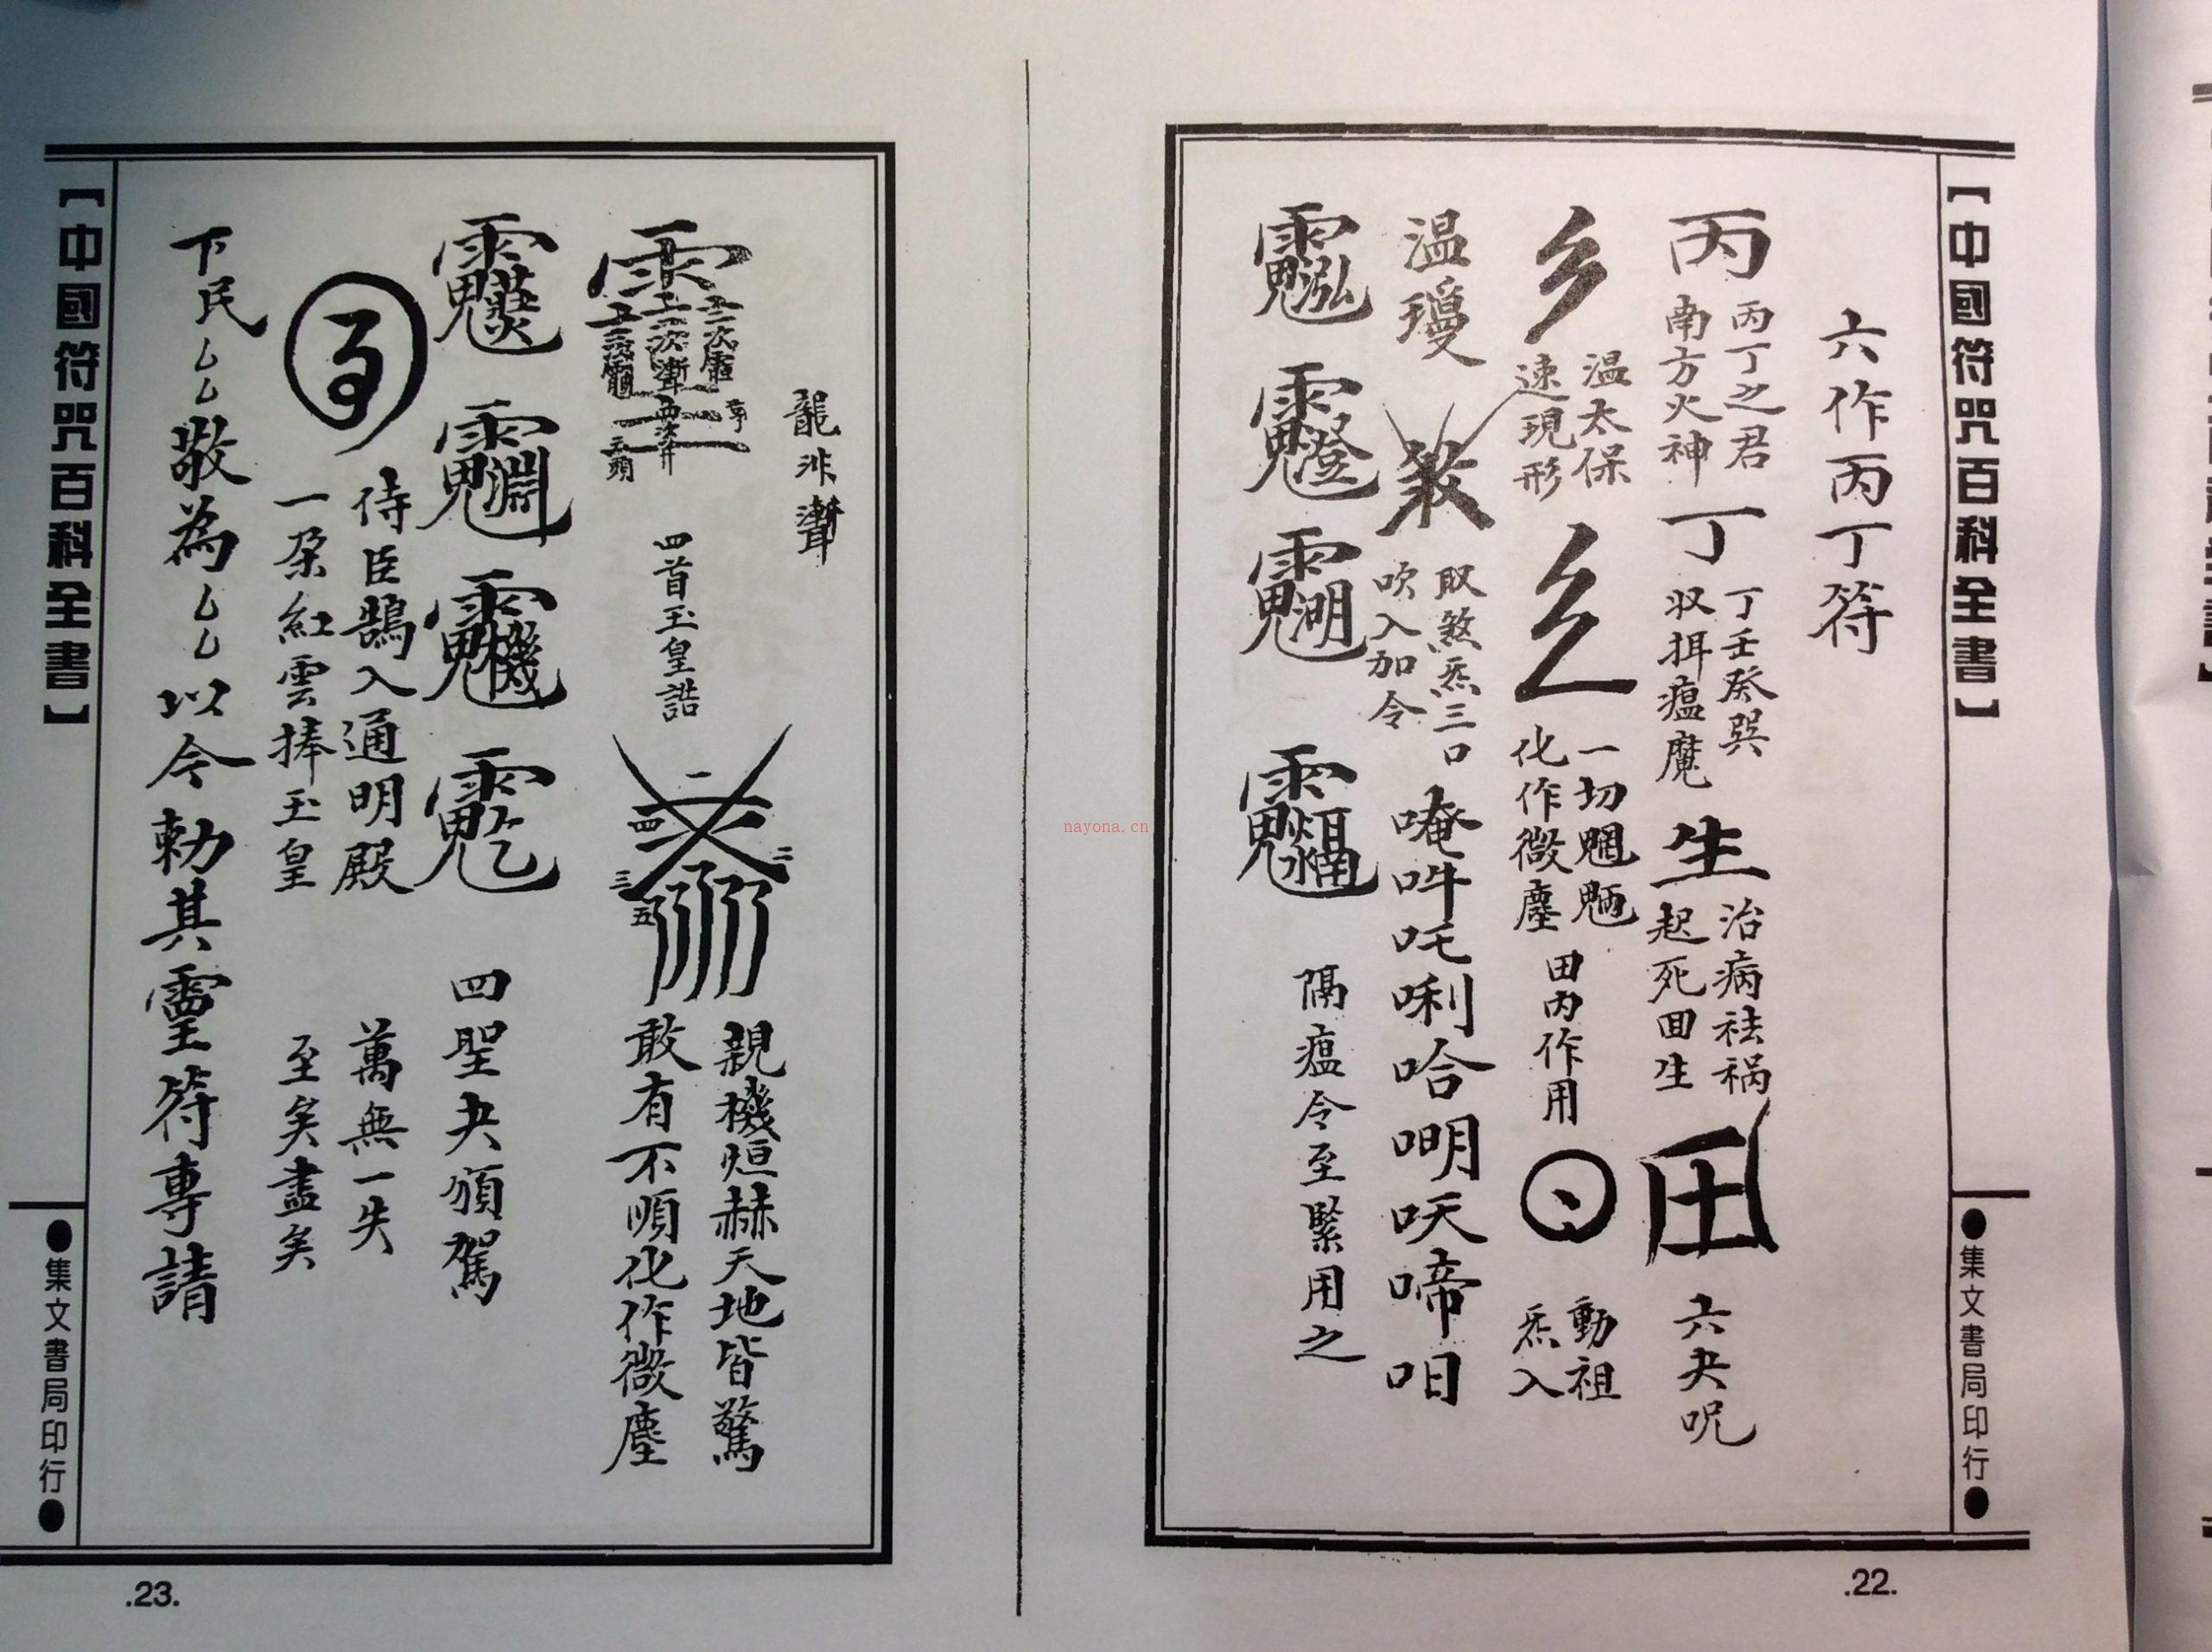 【中國符咒百科全書】
●集文書局印行●
六作丙丁符
丙
丙丁之君
南方火神
丁
丁壬癸巽
収抇瘟魔
生
治病祛祸
起死回生
六夬呪
温太保
速現形
一切魍魎
化作微塵
田内作用
動祖
炁入
温瓊
取煞炁三口
吹入加令
唵吽吒唎哈𠴢㕭啼呾
隔瘟令至緊用之
.22.
龍
四首玉皇誥
一
二
三
四
五
親機烜赫天地皆驚
敢有不順化作微塵
四聖夬頒駕
侍臣鵠入通明殿
一朶紅雲捧玉皇
萬無一失
至矣盡矣
下民厶厶敬為厶厶以今勅其靈符專請
【中國符咒百科全書】
●集文書局印行●
.23.
nayona.cn